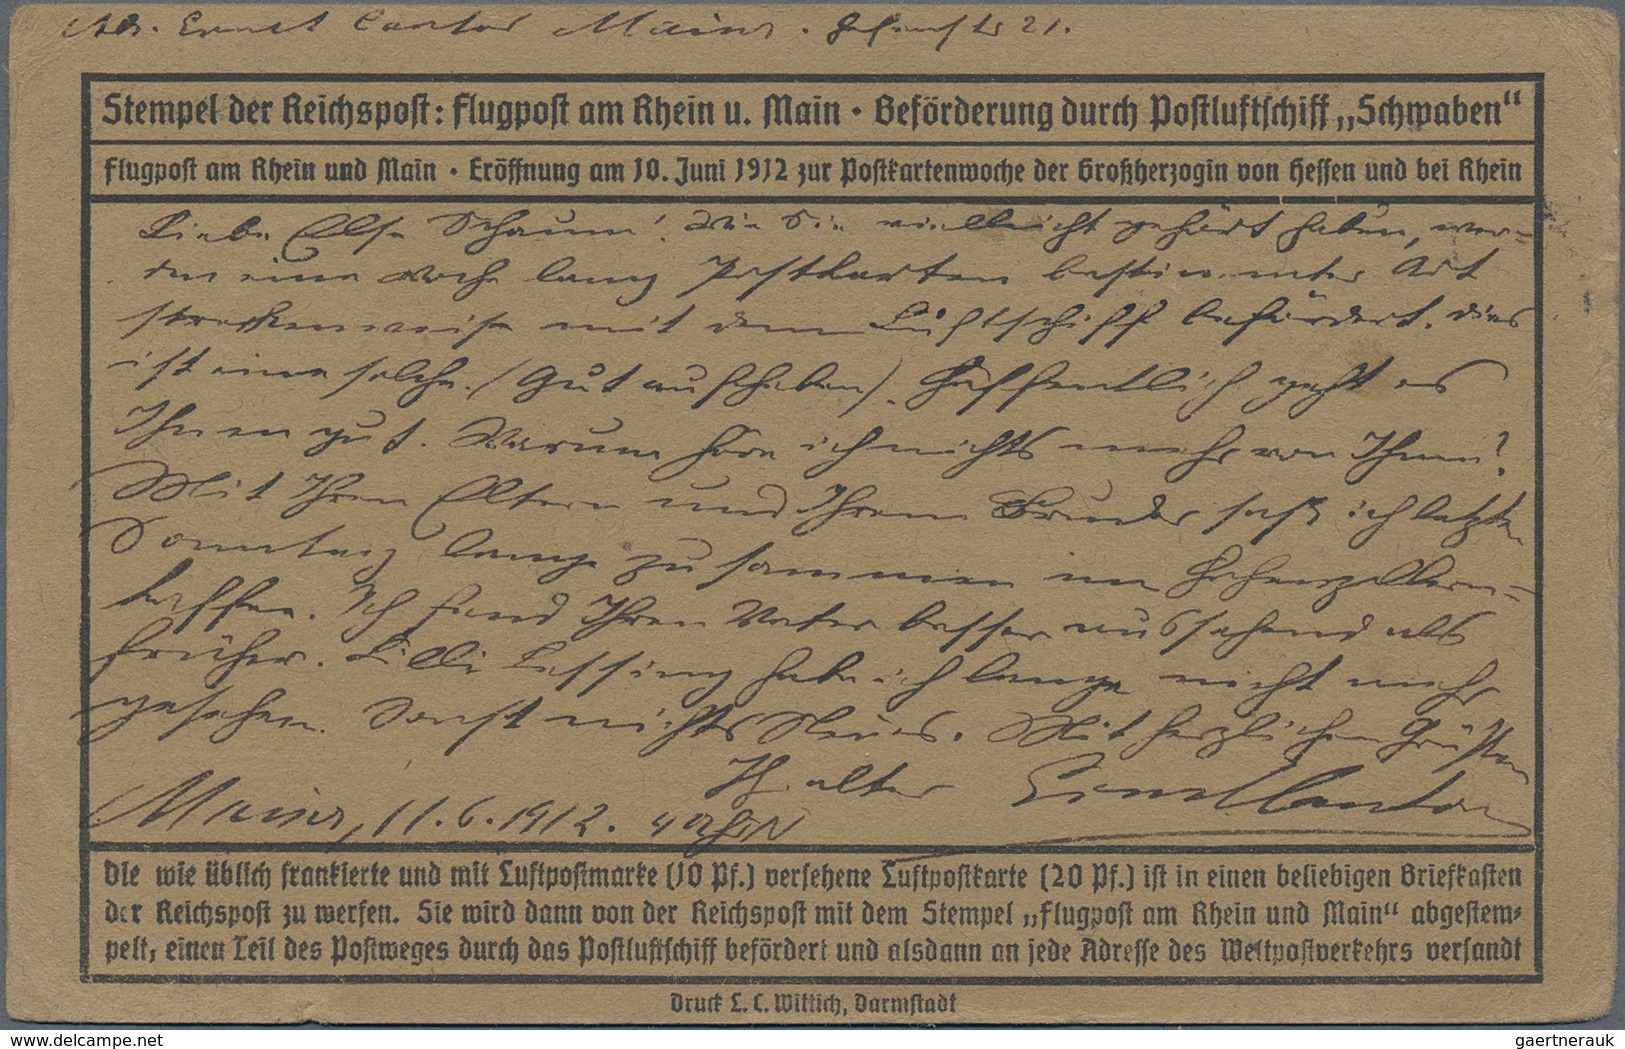 Ernst Cantor Mainz. 21.
Stempel der Reichspost: Flugpost am Rhein u. Main · Beförderung durch Postluftschiff „Schwaben“
Flugpost am Rhein und Main · Eröffnung am 10. Juni 1912 zur Postkartenwoche der Großherzogin von Hessen und bei Rhein
Liebe Else Schaum! Wie Sie vielleicht gehört haben, wer-
den eine Woche lang Postkarten bestimmter Art
streckenweise mit dem Luftschiff befördert. Dies
ist eine solche. (Gut aufheben). Hoffentlich geht es
Ihnen gut. Warum höre ich nichts mehr von Ihnen?
Mit Ihren Eltern und Ihrem Bruder saß ich letzten
Sonntag lange zusammen im Hohenzollern-
kaffee. Ich fand Ihren Vater besser aussehend als
früher. Lilli Lessing habe ich lange nicht mehr
gesehen. Sonst nichts Neues. Mit herzlichen Grüßen
Ihr alter Ernst Cantor
Mainz, 11.6.1912. 4 Uhr N
Die wie üblich frankierte und mit Luftpostmarke (10 Pf.) versehene Luftpostkarte (20 Pf.) ist in einen beliebigen Briefkasten
der Reichspost zu werfen. Sie wird dann von der Reichspost mit dem Stempel „Flugpost am Rhein und Main“ abgestem-
pelt, einen Teil des Postweges durch das Postluftschiff befördert und alsdann an jede Adresse des Weltpostverkehrs versandt
Druck L. C. Wittich, Darmstadt
www.delcampe.net
gaertnerauk